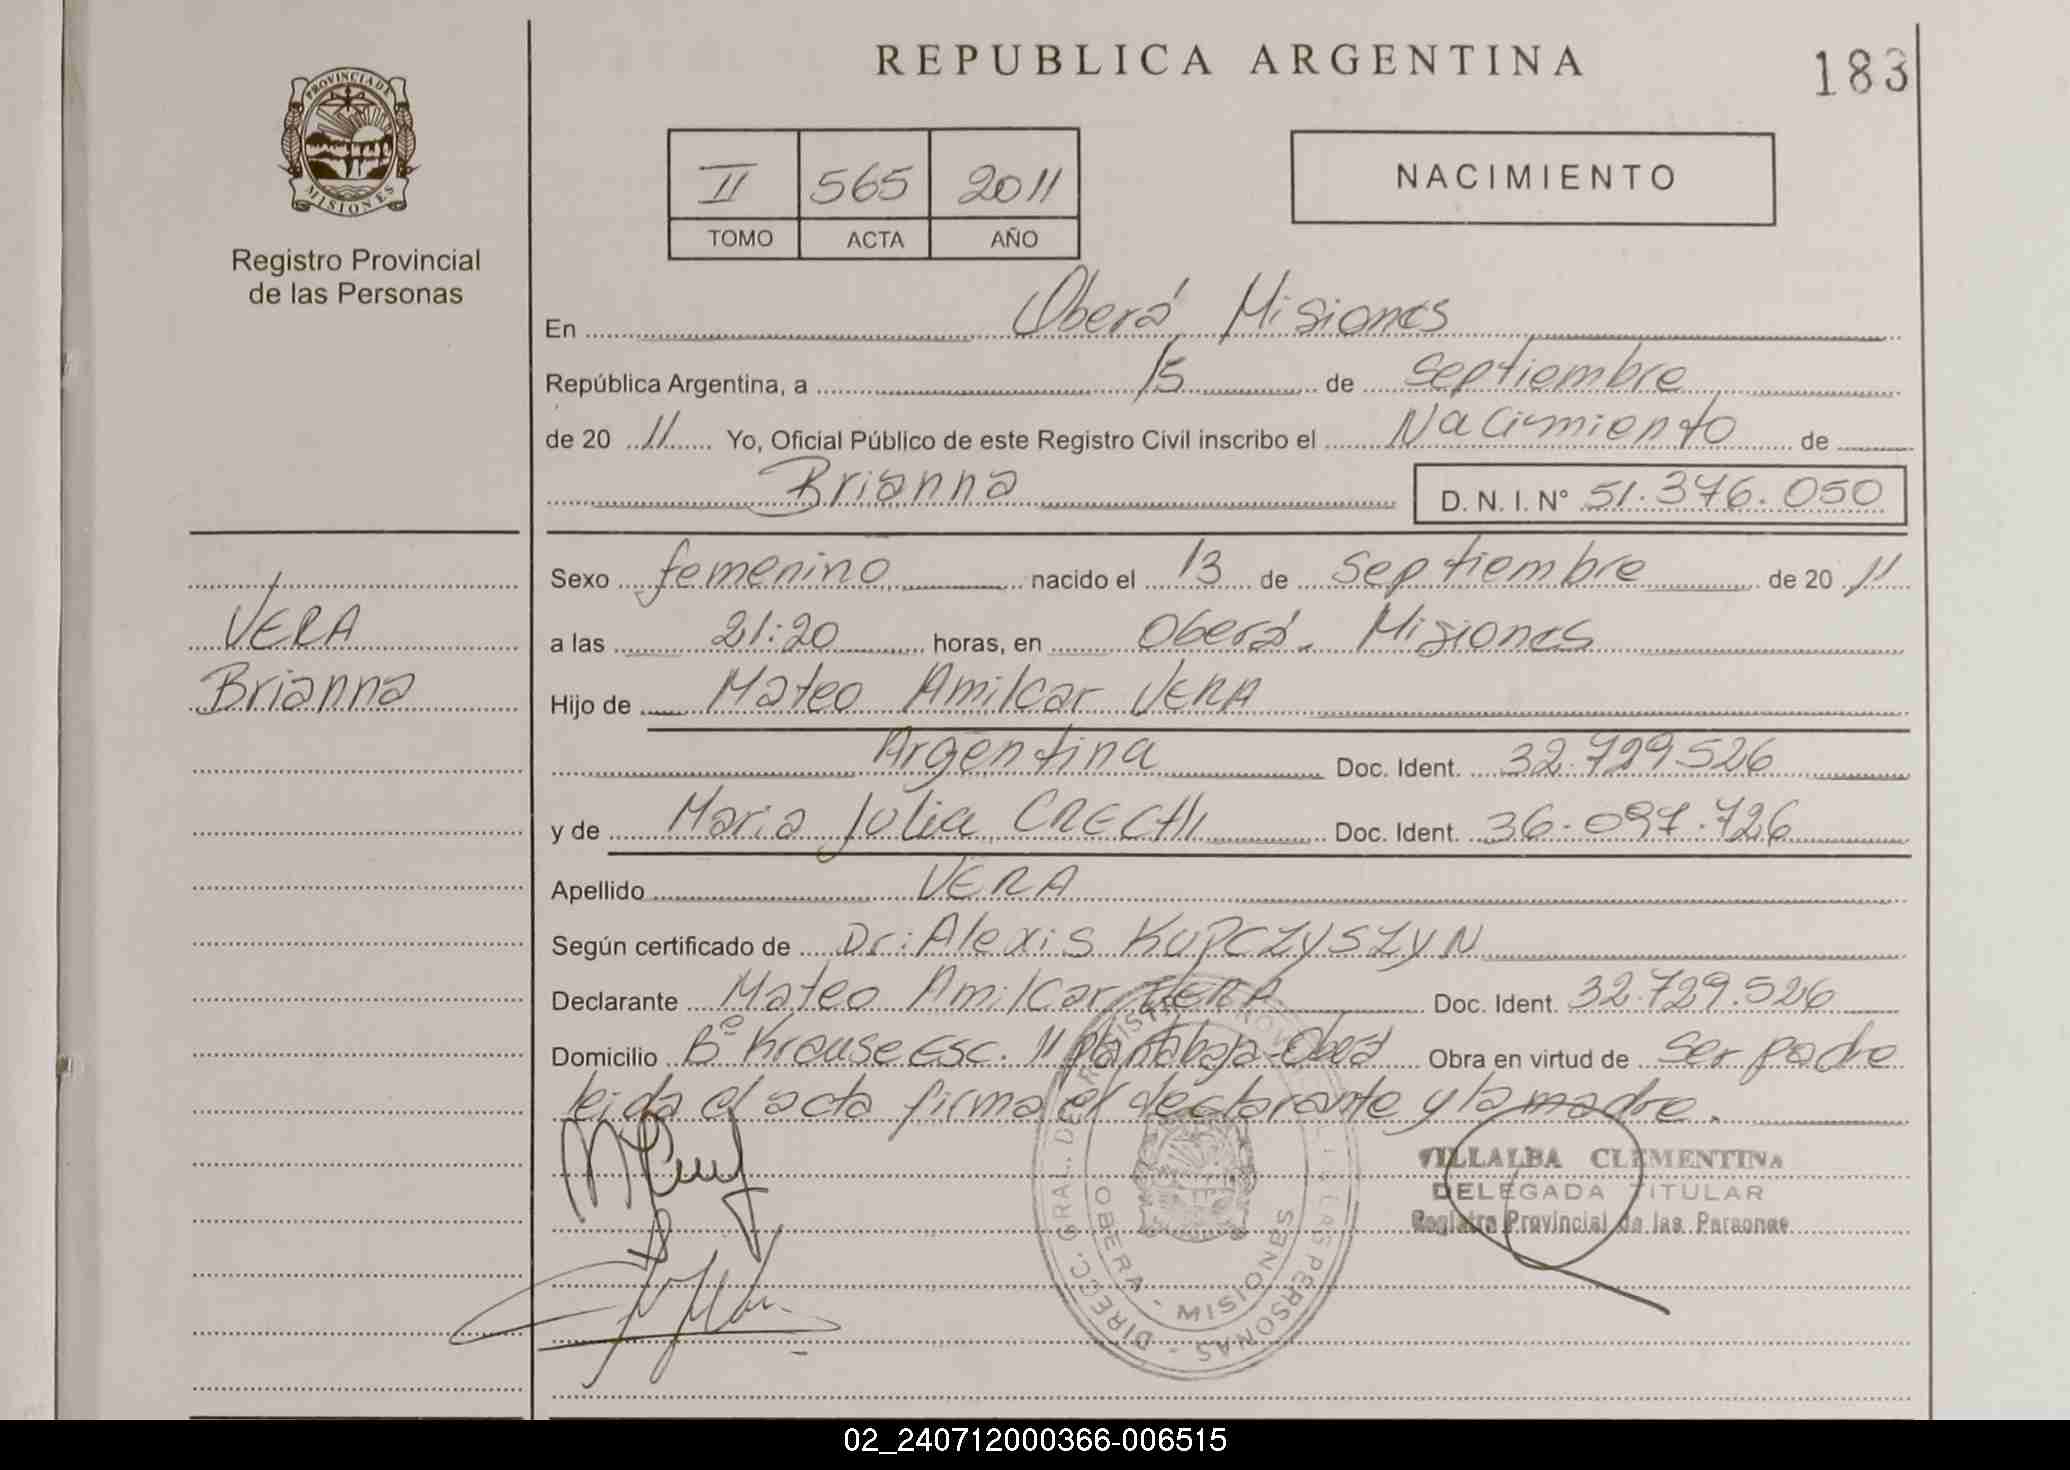 REPUBLICA ARGENTINA
183
PROVINCIA DE MISIONES
Registro Provincial
de las Personas
II 565 2011
TOMO ACTA AÑO
NACIMIENTO
En Oberá Misiones
República Argentina, a 15 de septiembre
de 20 11 Yo, Oficial Público de este Registro Civil inscribo el Nacimiento de
Brianna D. N. I. N° 51.376.050
Sexo femenino nacido el 13 de septiembre de 20 11
a las 21:20 horas, en Oberá. Misiones
Hijo de Mateo Amilcar VERA
Argentina Doc. Ident. 32.729.526
y de Maria Julia CRECHI Doc. Ident. 36.097.726
Apellido VERA
Según certificado de Dr: Alexis KUPCZYSZYN
Declarante Mateo Amilcar VERA Doc. Ident. 32.729.526
Domicilio B° Krause Esc. 11 planta baja-Oberá Obra en virtud de ser padre
leida el acta firma el declarante y la madre.
VERA
Brianna
VILLALBA CLEMENTINA
DELEGADA TITULAR
Registro Provincial de las Personas
DIREC. GRAL. DEL REGISTRO PROVINCIAL DE LAS PERSONAS
OBERA - MISIONES
02_240712000366-006515